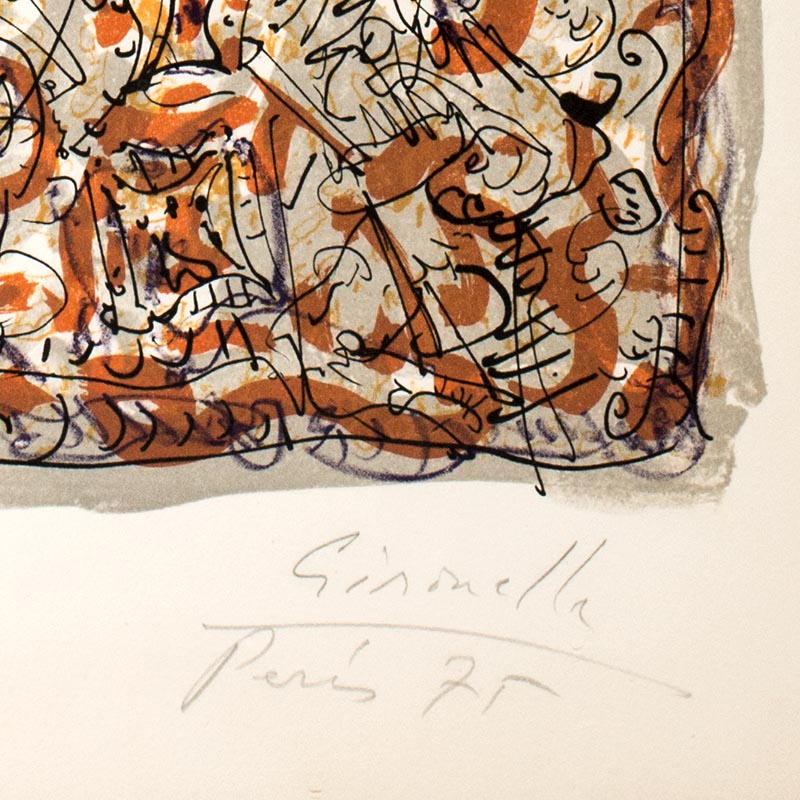 Gironella
París 75